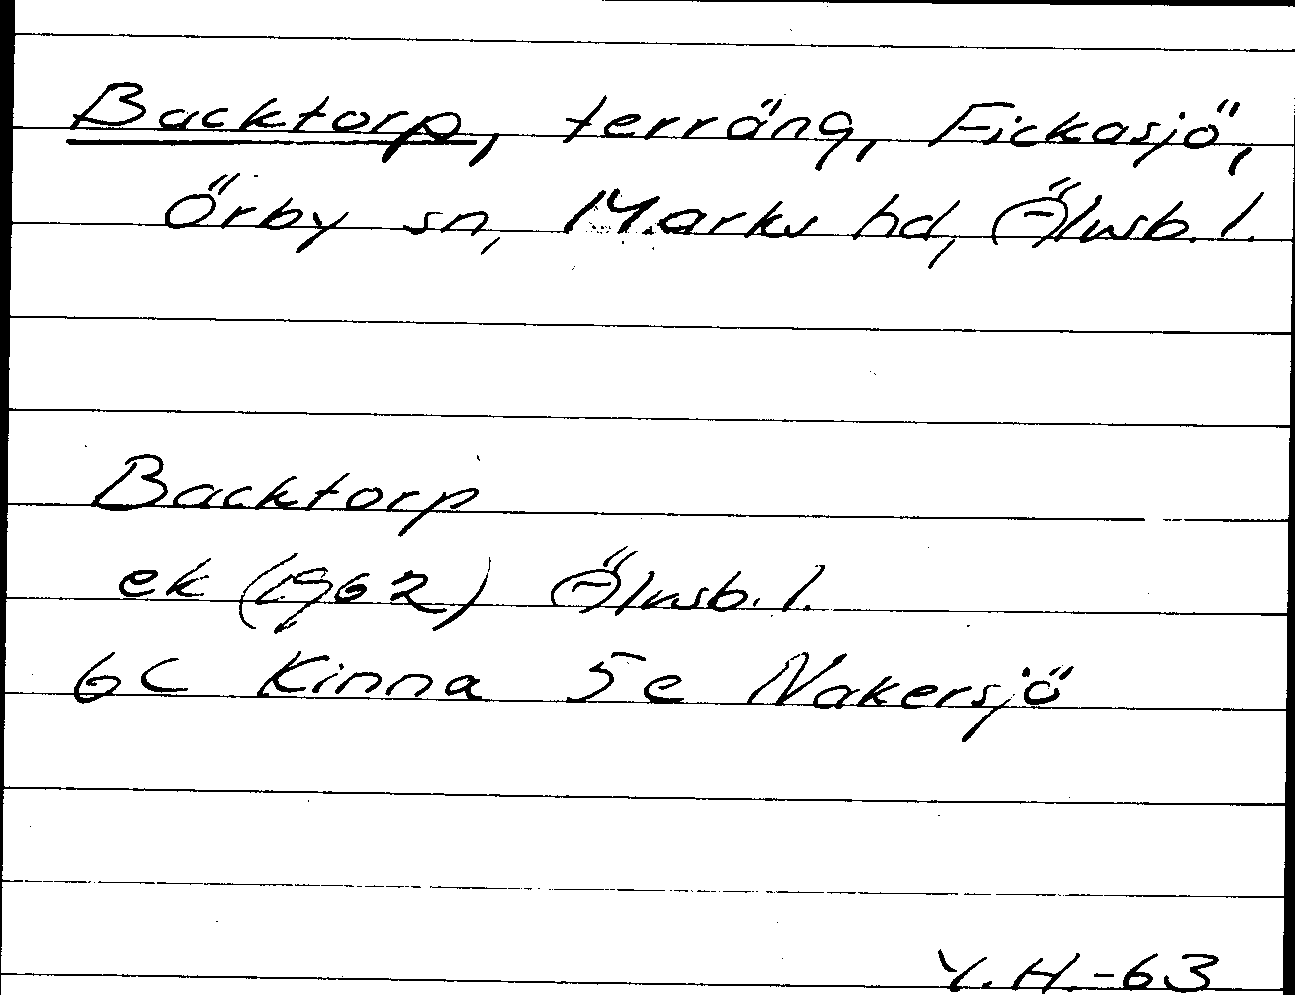 Backtorp, terräng, Fickasjö,
Örby sn, Marks hd, Älvsb. l.
Backtorp
ek (1962) Älvsb. l.
6C Kinna 5e Nakersjö
Y.H.-63